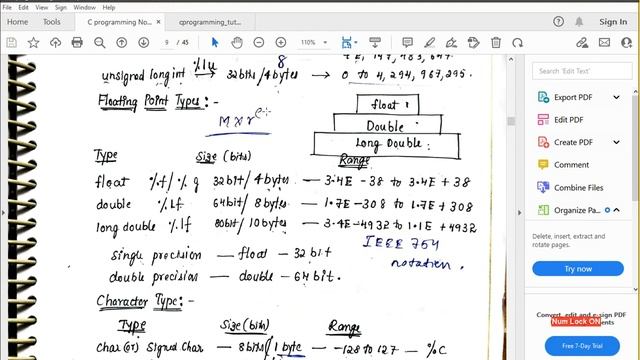 Home Tools C programming No... × cprogramming_tut... Sign In
9 / 45 110%
%lu 8
unsigned long int → 32bits/4bytes → 0 to 4,294,967,295.
Floating Point Types:-
float
Double
Long Double
Type Size (bits) Range
float %f/%g 32bit/4bytes — 3.4E-38 to 3.4E+38
double %lf 64bit/8bytes — 1.7E-308 to 1.7E+308
long double %lf 80bit/10bytes — 3.4E-4932 to 1.1E+4932
IEEE 754
notation.
single precision — float — 32bit
double precision — double — 64bit.
Character Type:-
Type Size(bits) Range
char (or) signed char — 8bits/1byte — -128 to 127 — %C
Search 'Edit Text'
Export PDF
Edit PDF
Create PDF
Comment
Combine Files
Organize Pa...
Delete, insert, extract and
rotate pages.
Try now
Num Lock ON
Free 7-Day Trial